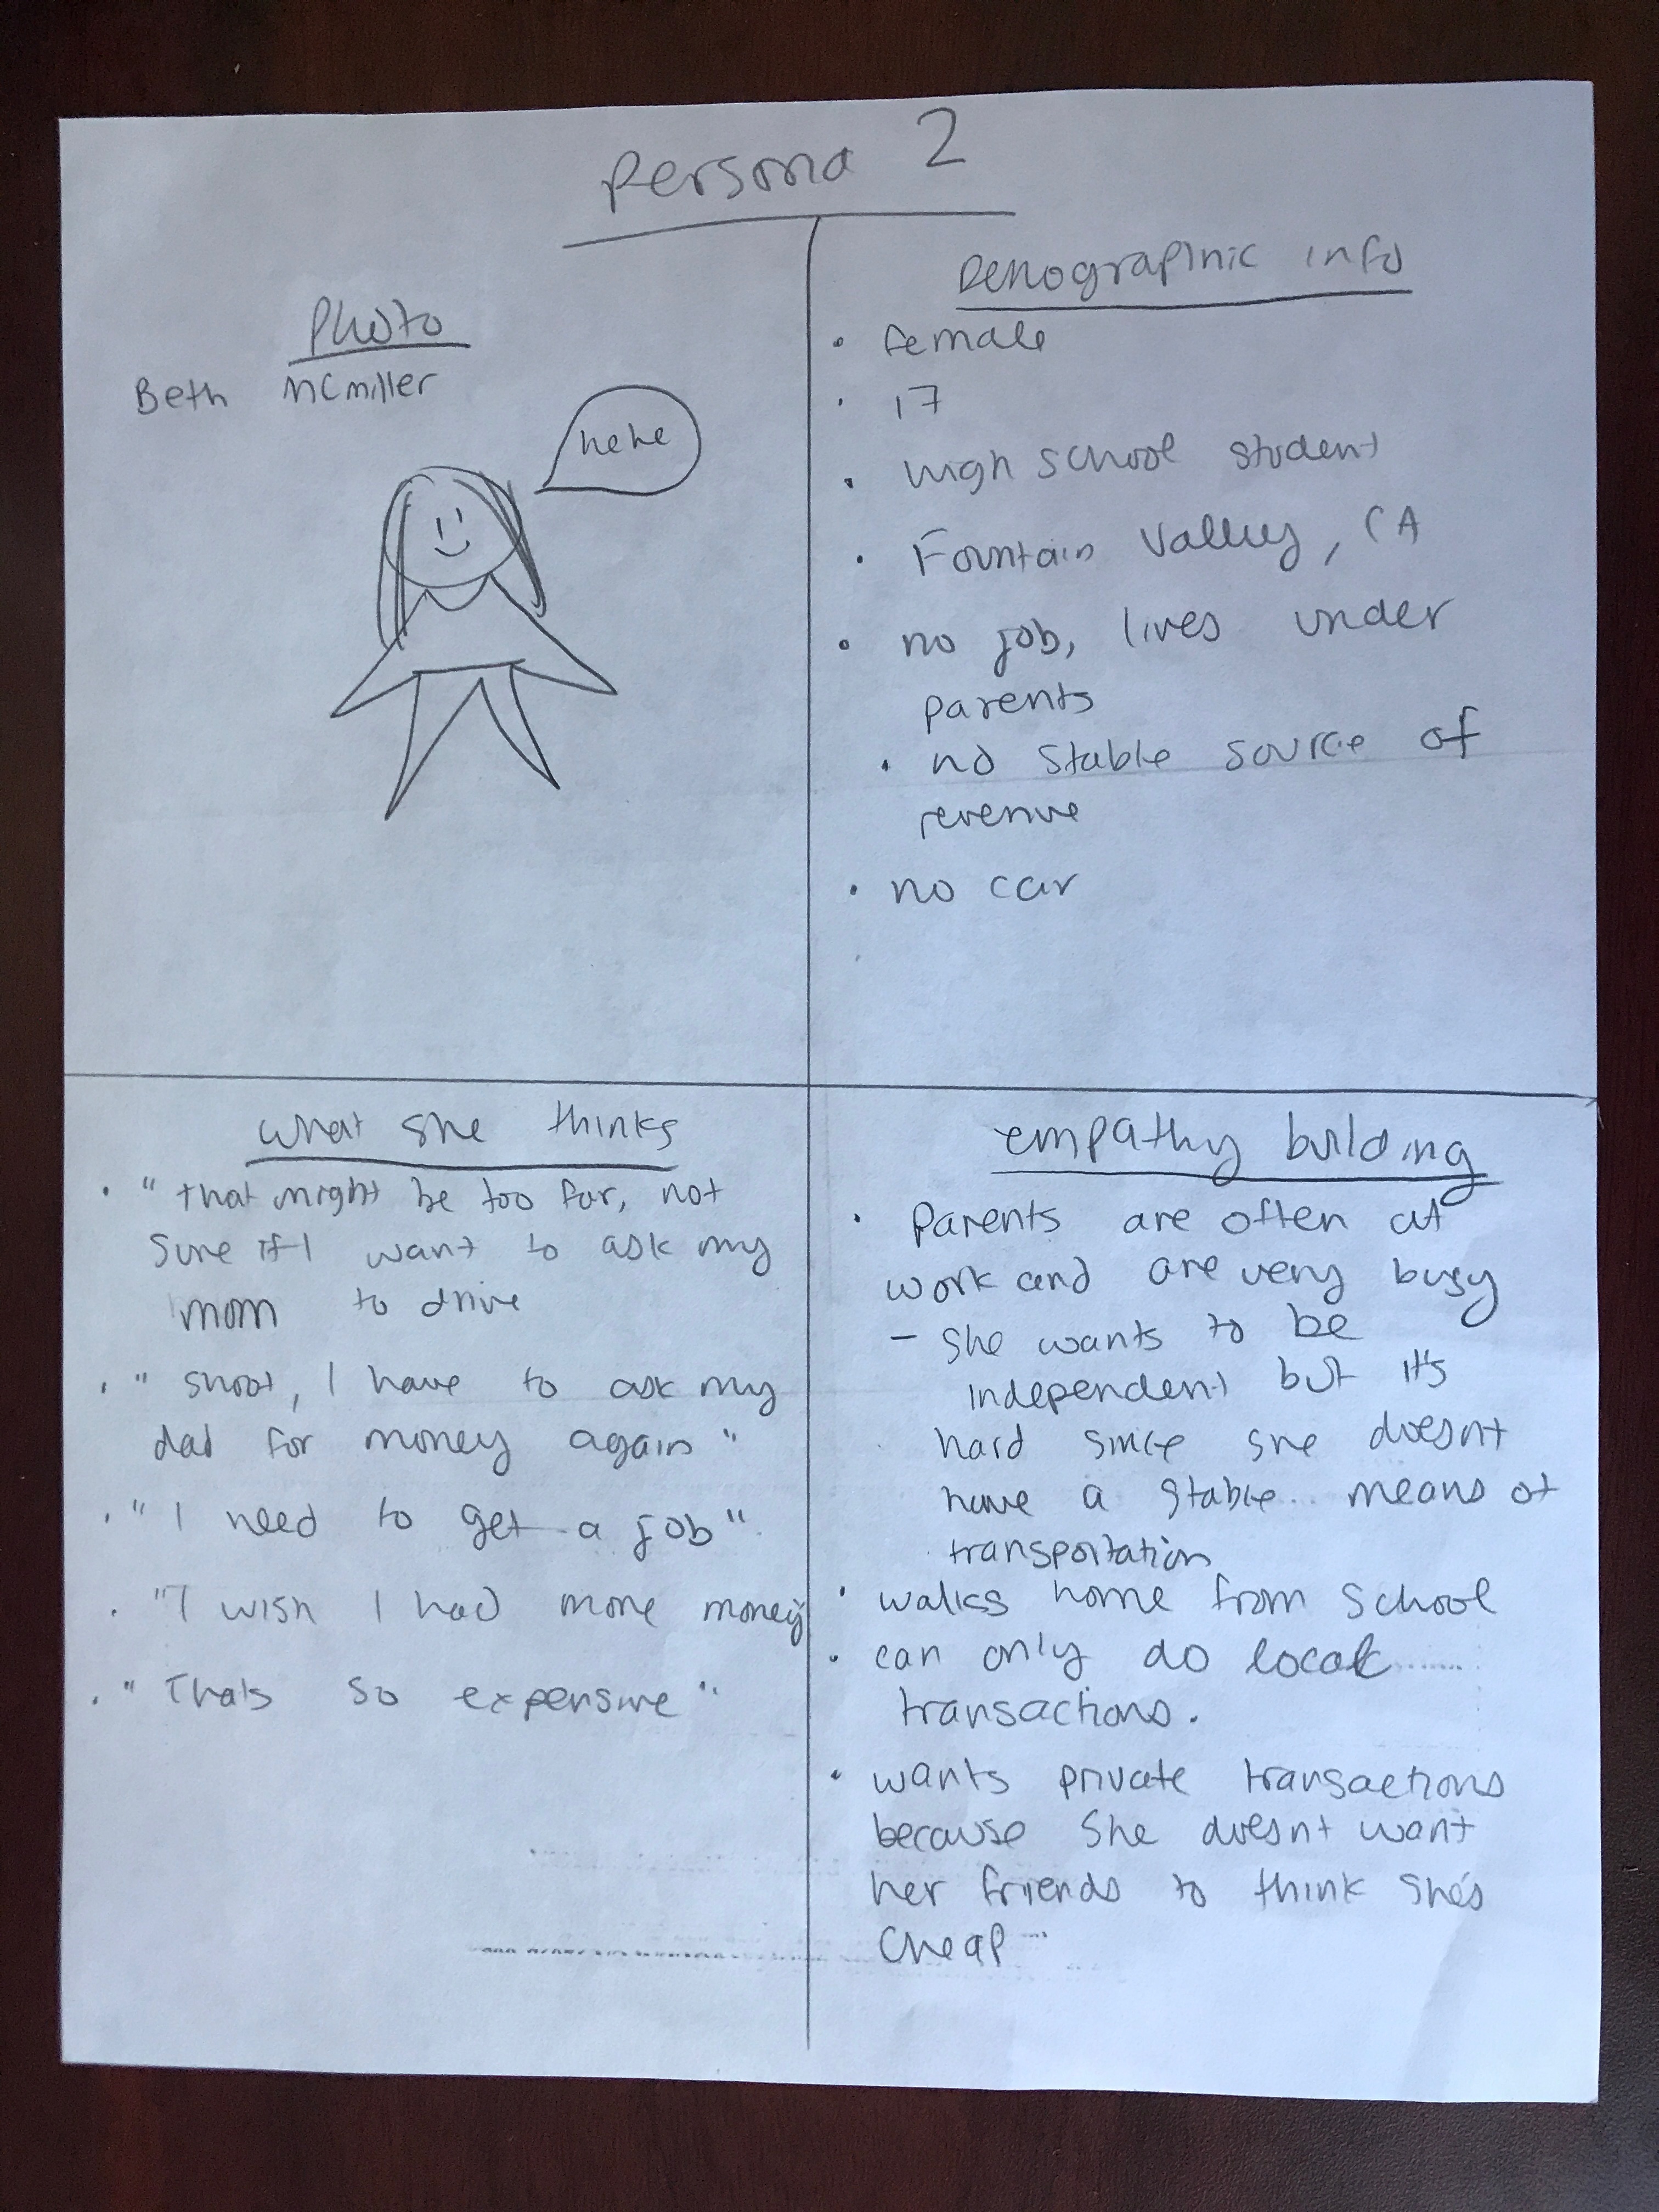 Persona 2
Photo
Beth McMiller
hehe
Demographic info
• female
• 17
• high school student
• Fountain Valley, CA
• no job, lives under
parents
• no stable source of
revenue
• no car
what she thinks
• "that might be too far, not
sure if I want to ask my
mom to drive
• " shoot, I have to ask my
dad for money again "
• " I need to get a job"
• "I wish I had more money
• " Thats so expensive "
empathy building
• Parents are often at
work and are very busy
- she wants to be
independent but it's
hard since she doesnt
have a stable means of
transportation
• walks home from school
• can only do local
transactions.
• wants private transactions
because she doesnt want
her friends to think she's
cheap